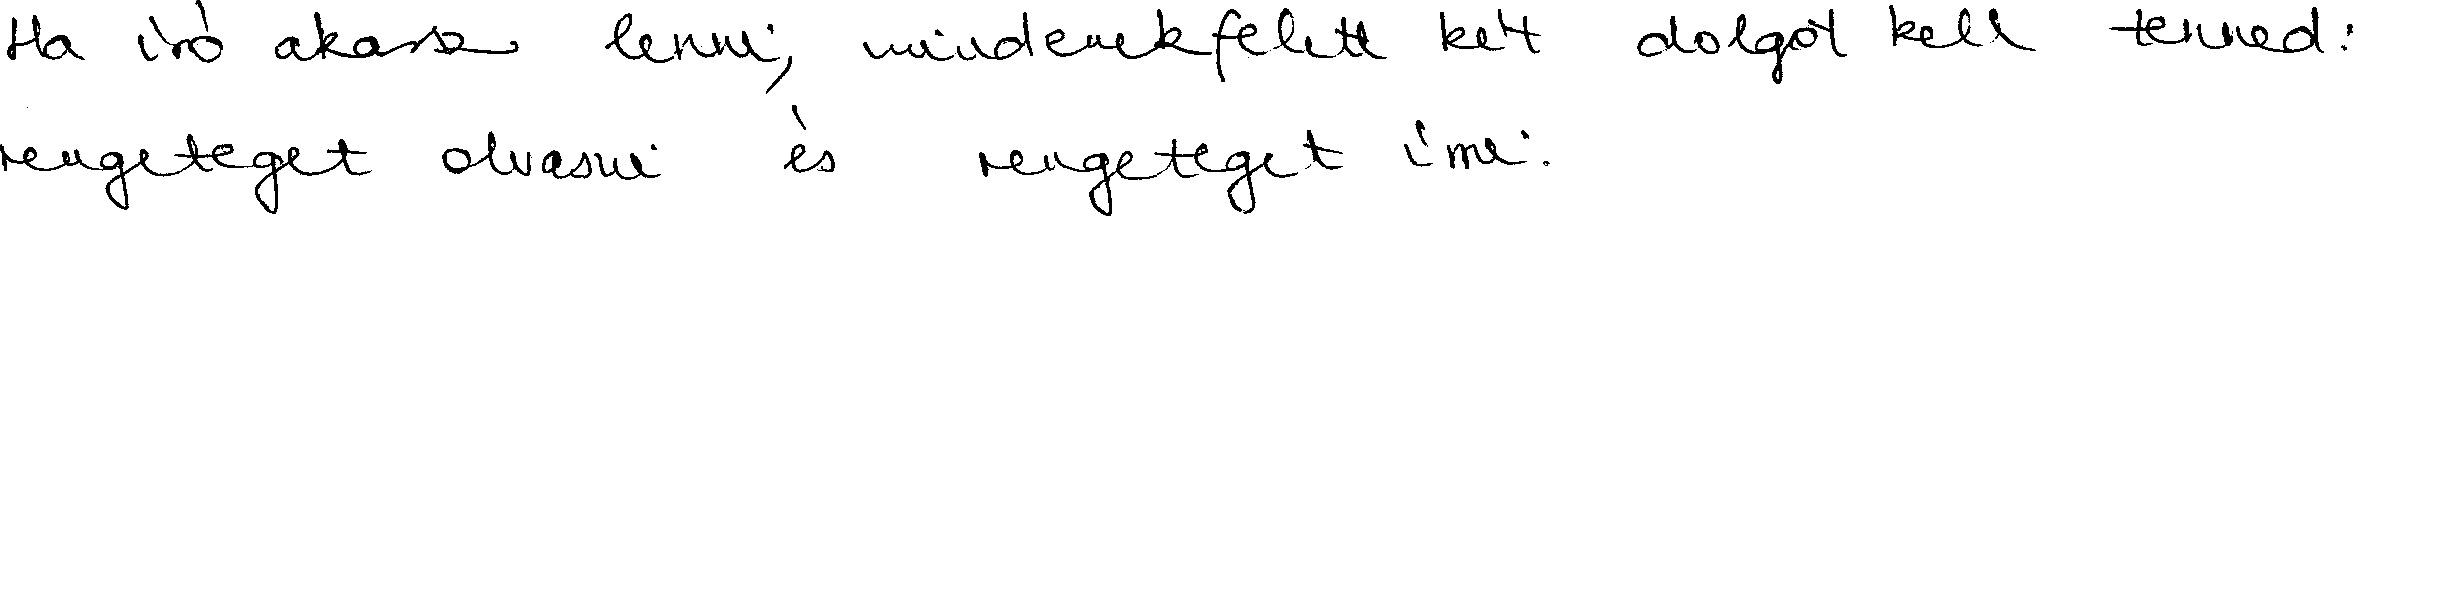 Ha író akarsz lenni, mindenekfelett két dolgot kell tenned:
rengeteget olvasni és rengeteget írni.